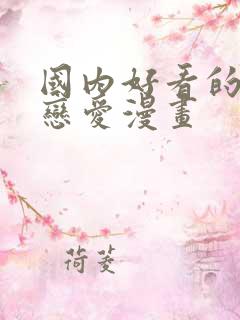 國內好看的
戀愛漫畫
荷菱